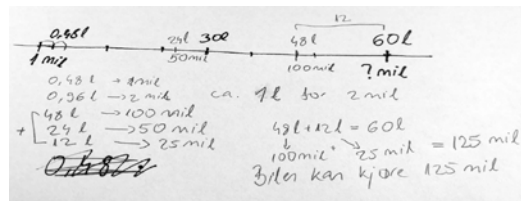 12
0,48l 24l 30l 48l 60l
1 mil 50mil 100mil ? mil
0,48 l → 1mil
0,96 l → 2 mil ca. 1l for 2mil
48 l → 100 mil
+ 24 l → 50 mil 48l + 12l = 60l
12 l → 25 mil 100mil 25 mil = 125 mil
Bilen kan kjøre 125 mil